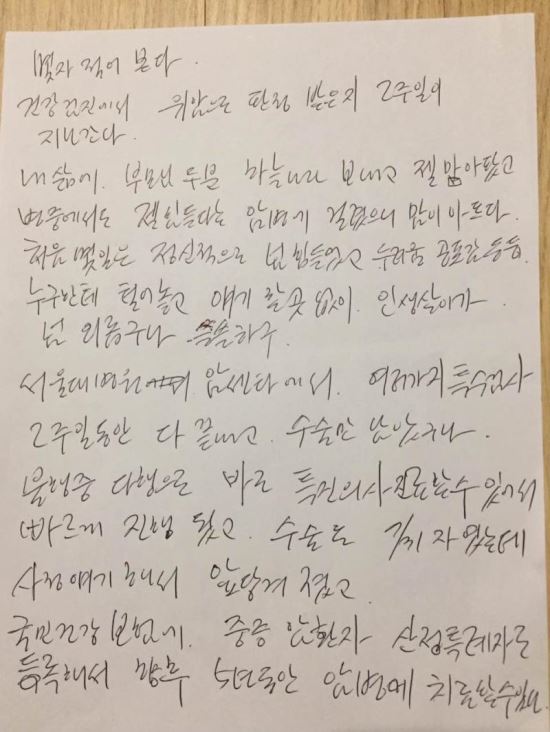 몇자 적어 본다.
건강검진에서 위암으로 판정 받은지 2주일이
지나간다.
내 삶에. 부모님 두분 하늘나라 보내고 젤 맘아팠고
병중에서도 젤힘들다는 암병에 걸렸으니 맘이 아프다.
처음 몇일은 정신적으로 넘 힘들었고 두려움 공포감 등등.
누구한테 털어놓고 얘기 할곳 없이. 인생살이가.
넘 외롭구나 쓸쓸하구.
서울대병원 암센타에서. 여러가지 특수검사
2주일동안 다 끝내고. 수술만 남았구나.
불행중 다행으로 바로 특진의사진료할수 있어서
빠르게 진행 됐고. 수술도 자였는데
사정얘기 해서 앞당겨 졌고.
국민건강보험에. 중증 암환자 산정특례자로
등록해서 향후 5년동안 암병에 치료할수있다